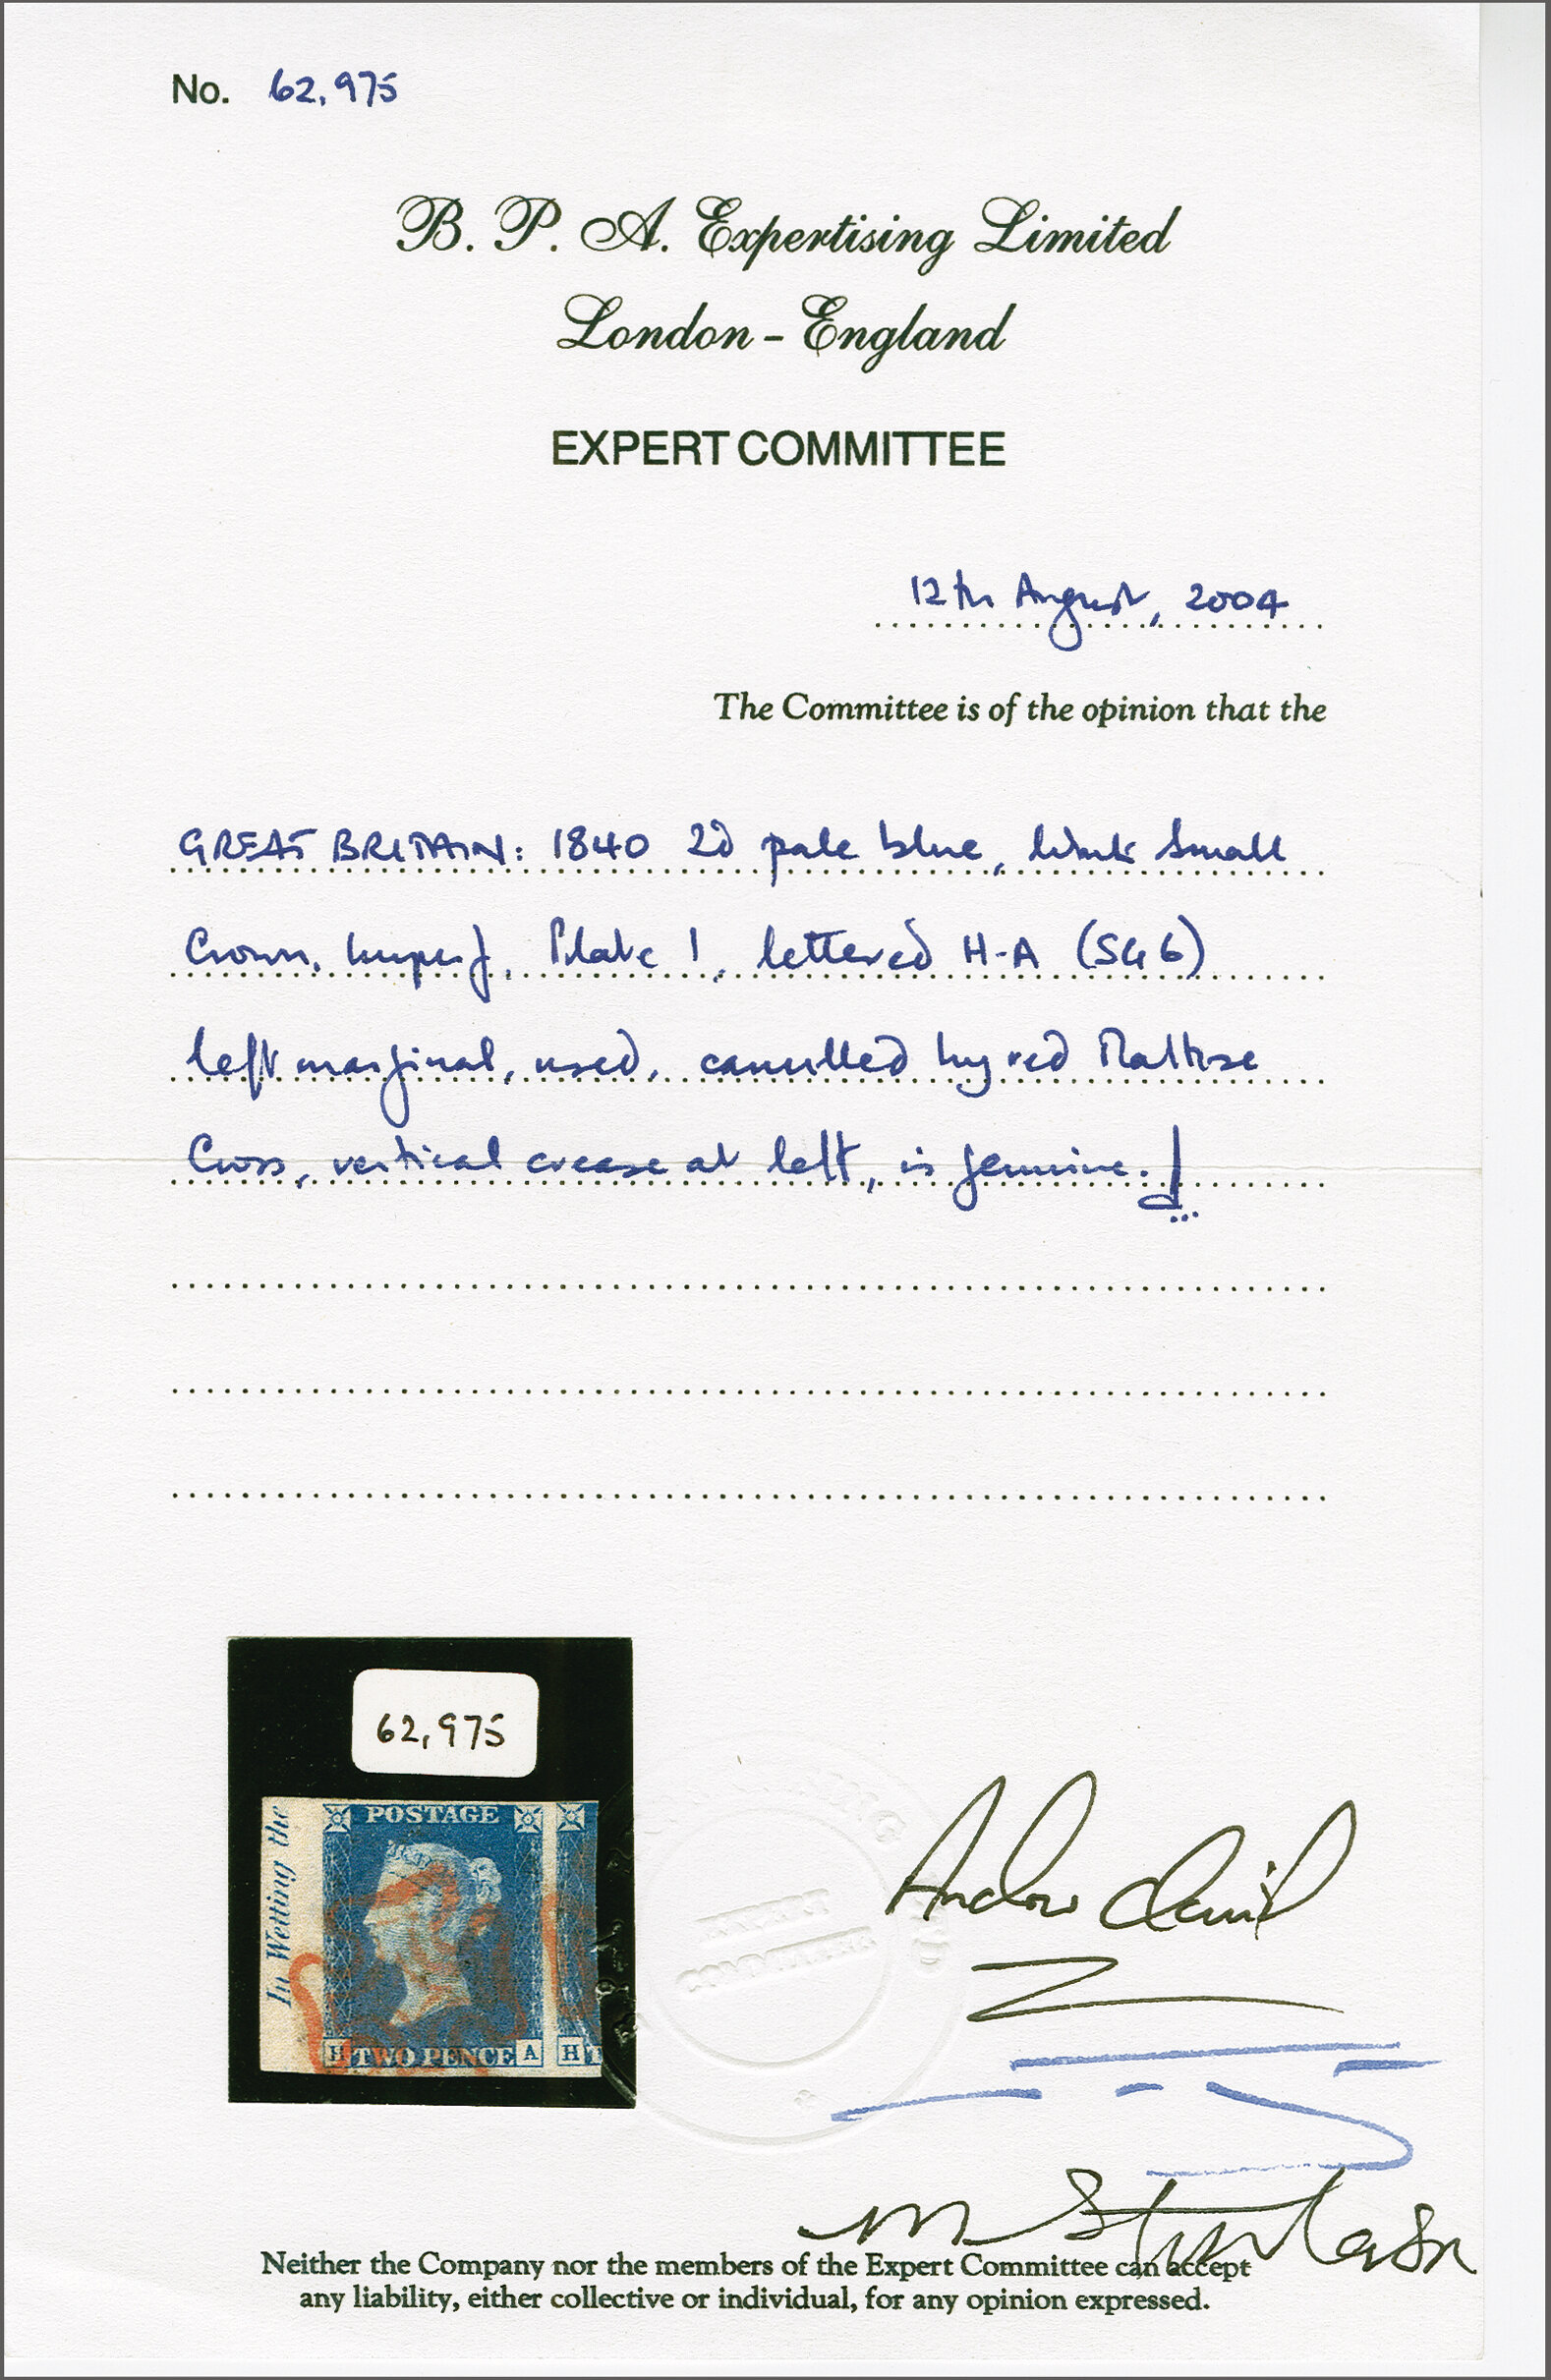 No. 62,975
B. P. A. Expertising Limited
London - England
EXPERT COMMITTEE
12th August, 2004
The Committee is of the opinion that the
GREAT BRITAIN: 1840 2d pale blue, wmk Small
Crown, imperf, Plate 1, lettered H-A (SG 6)
left marginal, used, cancelled by red Maltese
Cross, vertical crease at left, is genuine.
62,975
In Wetting the
POSTAGE
H TWO PENCE A H T
EXPERT
COMMITTEE
Neither the Company nor the members of the Expert Committee can accept
any liability, either collective or individual, for any opinion expressed.